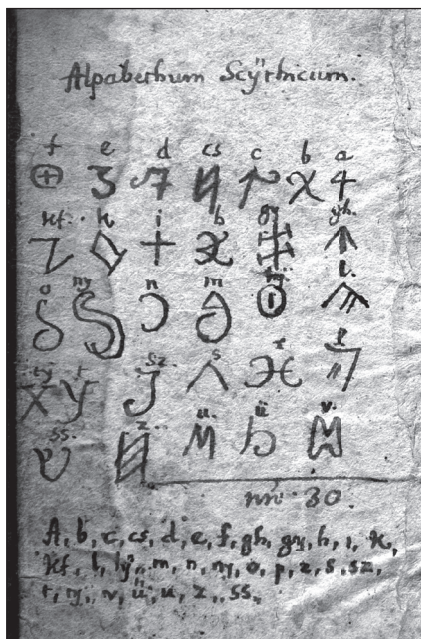 Alpabethum Scÿthicum.
f e d cs c b a
kf. k i h gy gh.
o ny n m ly. l.
ty t sz. s r p
ss. z. u. ü v.
nrō 30.
A, b, c, cs, d, e, f, gh, gy, h, i, k,
kf, l, lÿ, m, n, ny, o, p, r, s, sz,
t, ty, v, ü, u, z, ss,